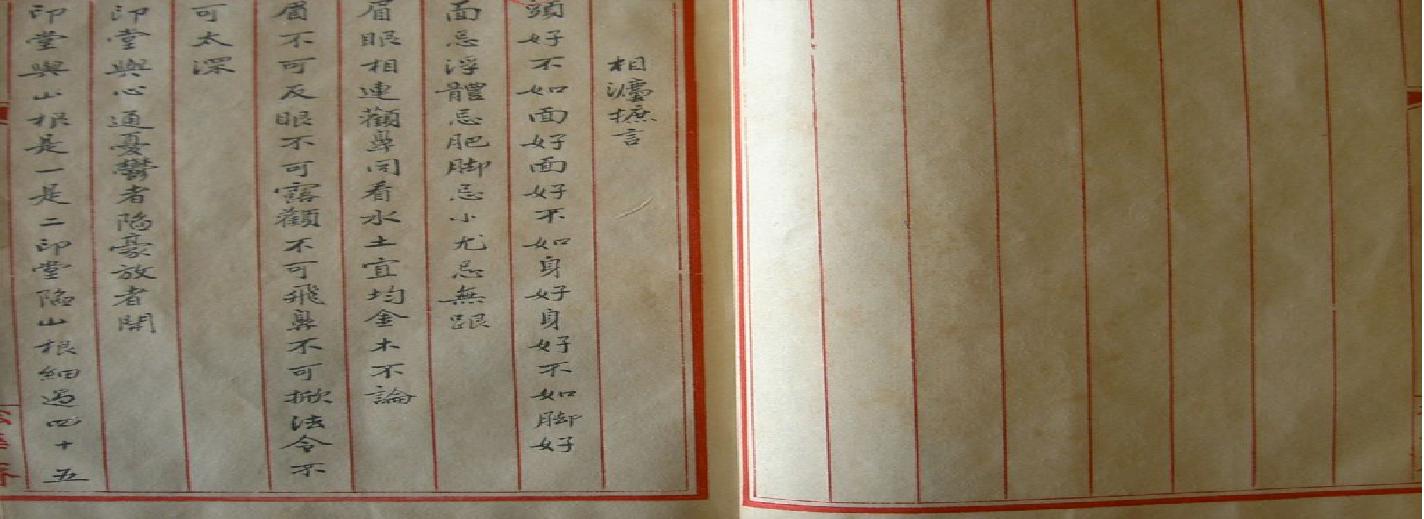 相灋摭言
頭好不如面好面好不如身好身好不如脚好
面忌浮體忌肥脚忌小尤忌無跟
眉眼相連顴鼻同看水土宜均金木不論
眉不可反眼不可露顴不可飛鼻不可掀法令不
可太深
印堂與心通憂鬱者陷豪放者開
印堂與山根是一是二印堂陷山根細過四十五